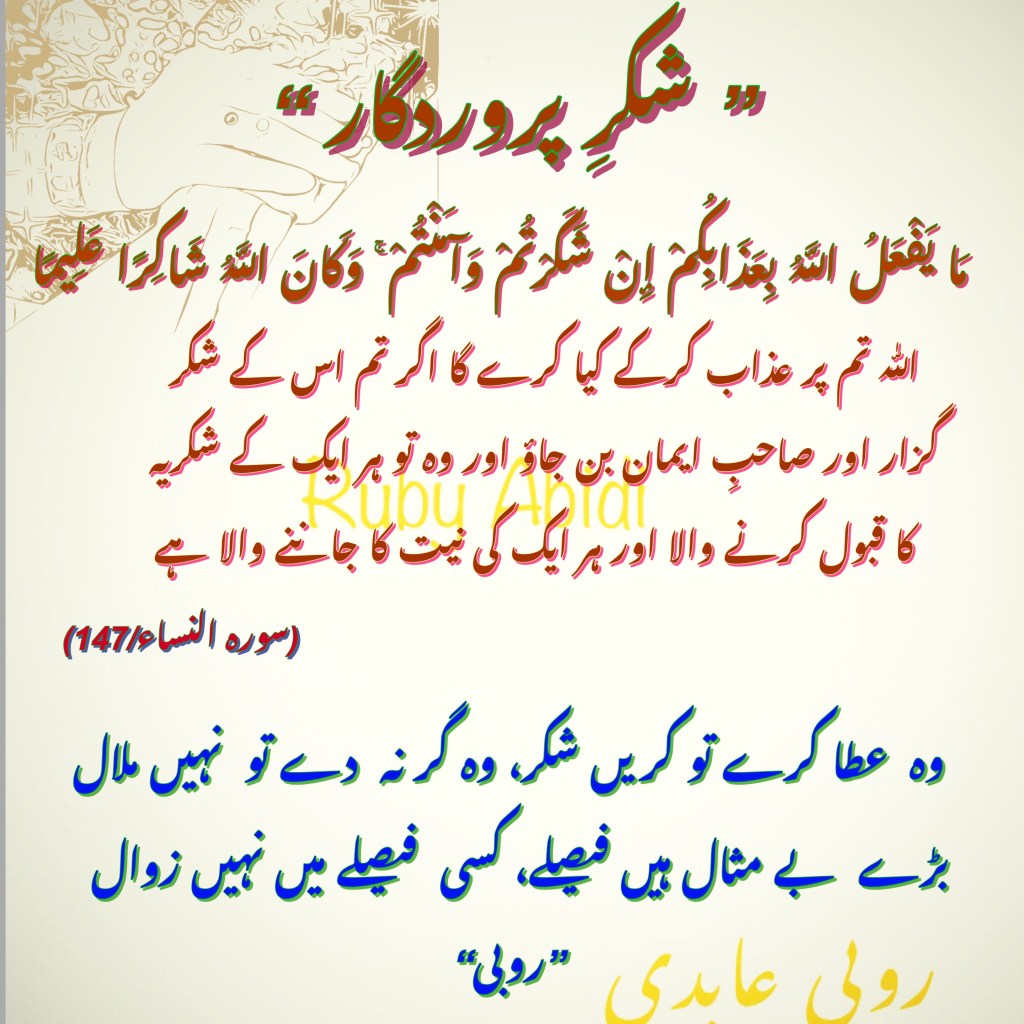 ” شکرِ پروردگار “
مَا يَفْعَلُ اللَّهُ بِعَذَابِكُمْ إِنْ شَكَرْتُمْ وَآمَنْتُمْ ۚ وَكَانَ اللَّهُ شَاكِرًا عَلِيمًا
اللہ تم پر عذاب کرکے کیا کرے گا اگر تم اس کے شکر
گزار اور صاحبِ ایمان بن جاؤ اور وہ تو ہر ایک کے شکریہ
Ruby Abidi
کا قبول کرنے والا اور ہر ایک کی نیت کا جاننے والا ہے
(سورہ النساء/147)
وہ عطا کرے تو کریں شکر، وہ گر نہ دے تو نہیں ملال
بڑے بے مثال ہیں فیصلے، کسی فیصلے میں نہیں زوال
”روبی“
روبی عابدی